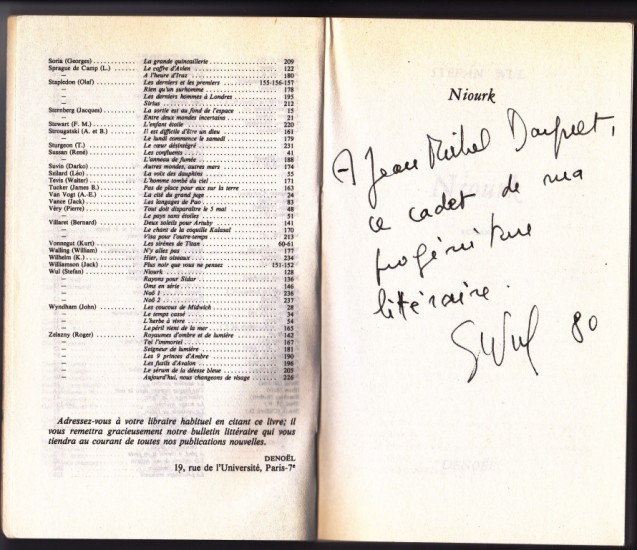 Soria (Georges) ........ La grande quincaillerie ........ 209
Sprague de Camp (L.) ........ Le coffre d'Avlen ........ 122
— A l'heure d'Iraz ........ 180
Stapledon (Olaf) ........ Les derniers et les premiers ........ 155-156-157
— Rien qu'un surhomme ........ 178
— Les derniers hommes à Londres ........ 195
— Sirius ........ 212
Sternberg (Jacques) ........ La sortie est au fond de l'espace ........ 15
— Entre deux mondes incertains ........ 21
Stewart (F. M.) ........ L'enfant étoile ........ 220
Strougatski (A. et B.) ........ Il est difficile d'être un dieu ........ 161
— Le lundi commence le samedi ........ 179
Sturgeon (T.) ........ Le cœur désintégré ........ 231
Sussan (René) ........ Les confluents ........ 41
— L'anneau de fumée ........ 188
Suvin (Darko) ........ Autres mondes, autres mers ........ 174
Szilard (Léo) ........ La voix des dauphins ........ 55
Tevis (Walter) ........ L'homme tombé du ciel ........ 171
Tucker (James B.) ........ Pas de place pour eux sur la terre ........ 163
Van Vogt (A.-E.) ........ La cité du grand juge ........ 24
Vance (Jack) ........ Les langages de Pao ........ 83
Véry (Pierre) ........ Tout doit disparaître le 5 mai ........ 48
— Le pays sans étoiles ........ 51
Villaret (Bernard) ........ Deux soleils pour Artuby ........ 141
— Le chant de la coquille Kalasaï ........ 170
— Visa pour l'outre-temps ........ 213
Vonnegut (Kurt) ........ Les sirènes de Titan ........ 60-61
Walling (William) ........ N'y allez pas ........ 177
Wilhelm (K.) ........ Hier, les oiseaux ........ 234
Williamson (Jack) ........ Plus noir que vous ne pensez ........ 151-152
Wul (Stefan) ........ Niourk ........ 128
— Rayons pour Sidar ........ 136
— Oms en série ........ 146
— Noô 1 ........ 236
— Noô 2 ........ 237
Wyndham (John) ........ Les coucous de Midwich ........ 28
— Le temps cassé ........ 34
— L'herbe à vivre ........ 54
— Le péril vient de la mer ........ 165
Zelazny (Roger) ........ Royaumes d'ombre et de lumière ........ 142
— Toi l'immortel ........ 167
— Seigneur de lumière ........ 181
— Les 9 princes d'Ambre ........ 190
— Les fusils d'Avalon ........ 196
— Le sérum de la déesse bleue ........ 205
— Aujourd'hui, nous changeons de visage ........ 226
Adressez-vous à votre libraire habituel en citant ce livre; il
vous remettra gracieusement notre bulletin littéraire qui vous
tiendra au courant de toutes nos publications nouvelles.
DENOËL
19, rue de l'Université, Paris-7e
Niourk
A Jean Michel
ce cadet de ma
progéniture
littéraire.
S Wul 80